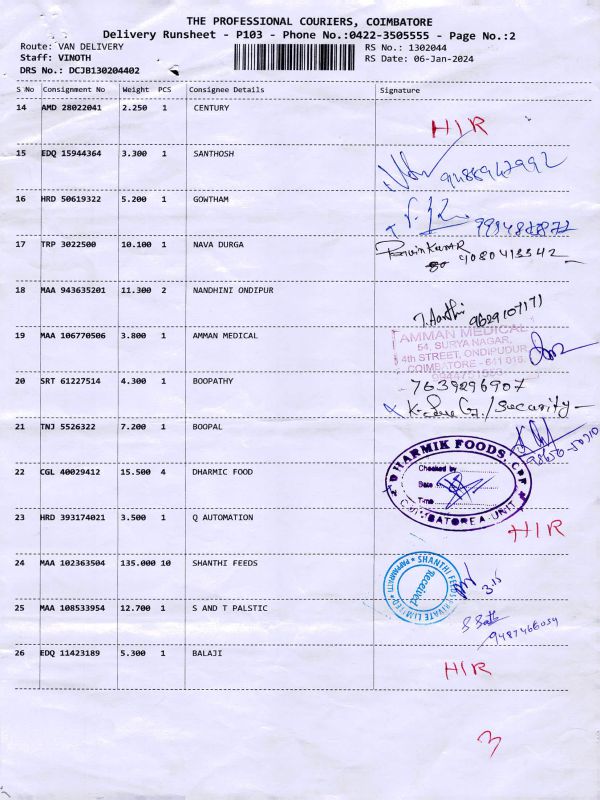 THE PROFESSIONAL COURIERS, COIMBATORE
Delivery Runsheet - P103 - Phone No.:0422-3505555 - Page No.:2
Route: VAN DELIVERY RS No.: 1302044
Staff: VINOTH RS Date: 06-Jan-2024
DRS No.: DCJB130204402
S No Consignment No Weight PCS Consignee Details Signature
14 AMD 28022041 2.250 1 CENTURY
HIR
15 EDQ 15944364 3.300 1 SANTHOSH
16 HRD 50619322 5.200 1 GOWTHAM
17 TRP 3022500 10.100 1 NAVA DURGA
9080413342
18 MAA 943635201 11.300 2 NANDHINI ONDIPUR
J. Aarthi 9629107171
19 MAA 106770506 3.800 1 AMMAN MEDICAL
AMMAN MEDICAL
54, SURYA NAGAR,
4th STREET, ONDIPUDUR
COIMBATORE - 641 016.
20 SRT 61227514 4.300 1 BOOPATHY
7639296907
/Security
21 TNJ 5526322 7.200 1 BOOPAL
22 CGL 40029412 15.500 4 DHARMIC FOOD
DHARMIK FOODS
Checked by
Date
Time
COIMBATORE A-UNIT
23 HRD 393174021 3.500 1 Q AUTOMATION
HIR
24 MAA 102363504 135.000 10 SHANTHI FEEDS
SHANTHI FEEDS PRIVATE LIMITED
Received
3.15
25 MAA 108533954 12.700 1 S AND T PALSTIC
26 EDQ 11423189 5.300 1 BALAJI
HIR
3